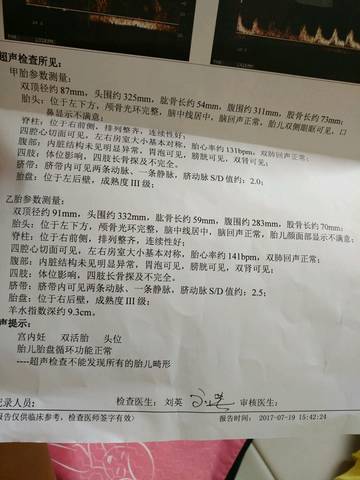 超声检查所见:
甲胎参数测量:
双顶径约87mm，头围约325mm，肱骨长约54mm，腹围约311mm，股骨长约73mm;
胎头: 位于左下方，颅骨光环完整，脑中线居中，脑回声正常; 胎儿双侧眼眶可见，口
鼻显示不满意;
脊柱: 位于右前侧，排列整齐，连续性好;
四腔心切面可见，左右房室大小基本对称，胎心率约131bpm，双肺回声正常;
腹部: 内脏结构未见明显异常，胃泡可见，膀胱可见，双肾可见;
四肢: 体位影响，四肢长骨探及不完全。
脐带: 脐带内可见两条动脉、一条静脉，脐动脉 S/D 值约: 2.0;
胎盘: 位于左后壁，成熟度 III级;
乙胎参数测量:
双顶径约91mm，头围约332mm，肱骨长约59mm，腹围约283mm，股骨长约70mm;
胎头: 位于左下方，颅骨光环完整，脑中线居中，脑回声正常，胎儿颜面部显示不满意;
脊柱: 位于右前侧，排列整齐，连续性好;
四腔心切面可见，左右房室大小基本对称，胎心率约141bpm，双肺回声正常;
腹部: 内脏结构未见明显异常，胃泡可见，膀胱可见，双肾可见;
四肢: 体位影响，四肢长骨探及不完全。
脐带: 脐带内可见两条动脉、一条静脉，脐动脉 S/D 值约: 2.5;
胎盘: 位于右后壁，成熟度 III级;
羊水指数深约9.3cm。
声提示:
宫内妊 双活胎 头位
胎儿胎盘循环功能正常
----超声检查不能发现所有的胎儿畸形
记录人员: 检查医生: 刘英 审核医生:
报告仅供临床参考，检查医师签字有效> 报告时间: 2017-07-19 15:42:24